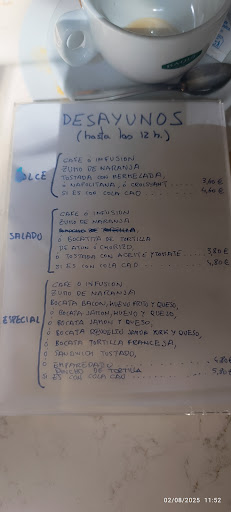 DESAYUNOS
(hasta las 12 h.)
DULCE
CAFE O INFUSION
ZUMO DE NARANJA
TOSTADA CON MERMELADA,
O NAPOLITANA, O CROISSANT .... 3,60 €
SI ES CON COLA CAO ..... 4,60 €
SALADO
CAFE O INFUSION
ZUMO DE NARANJA
O BOCATITA DE TORTILLA
DE ATUN O CHORIZO,
O TOSTADA CON ACEITE Y TOMATE... 3,80 €
SI ES CON COLA CAO ..... 4,80 €
ESPECIAL
CAFE O INFUSION
ZUMO DE NARANJA
BOCATA BACON, HUEVO FRITO Y QUESO,
O BOCATA JAMON, HUEVO Y QUESO,
O BOCATA JAMON Y QUESO,
O BOCATA REVUELTO JAMON YORK Y QUESO,
O BOCATA TORTILLA FRANCESA,
O SANDWICH TOSTADO,
O EMPAREDADO ..... 4,80 €
PINCHO DE TORTILLA
SI ES CON COLA CAO ..... 5,80 €
02/08/2025 11:52